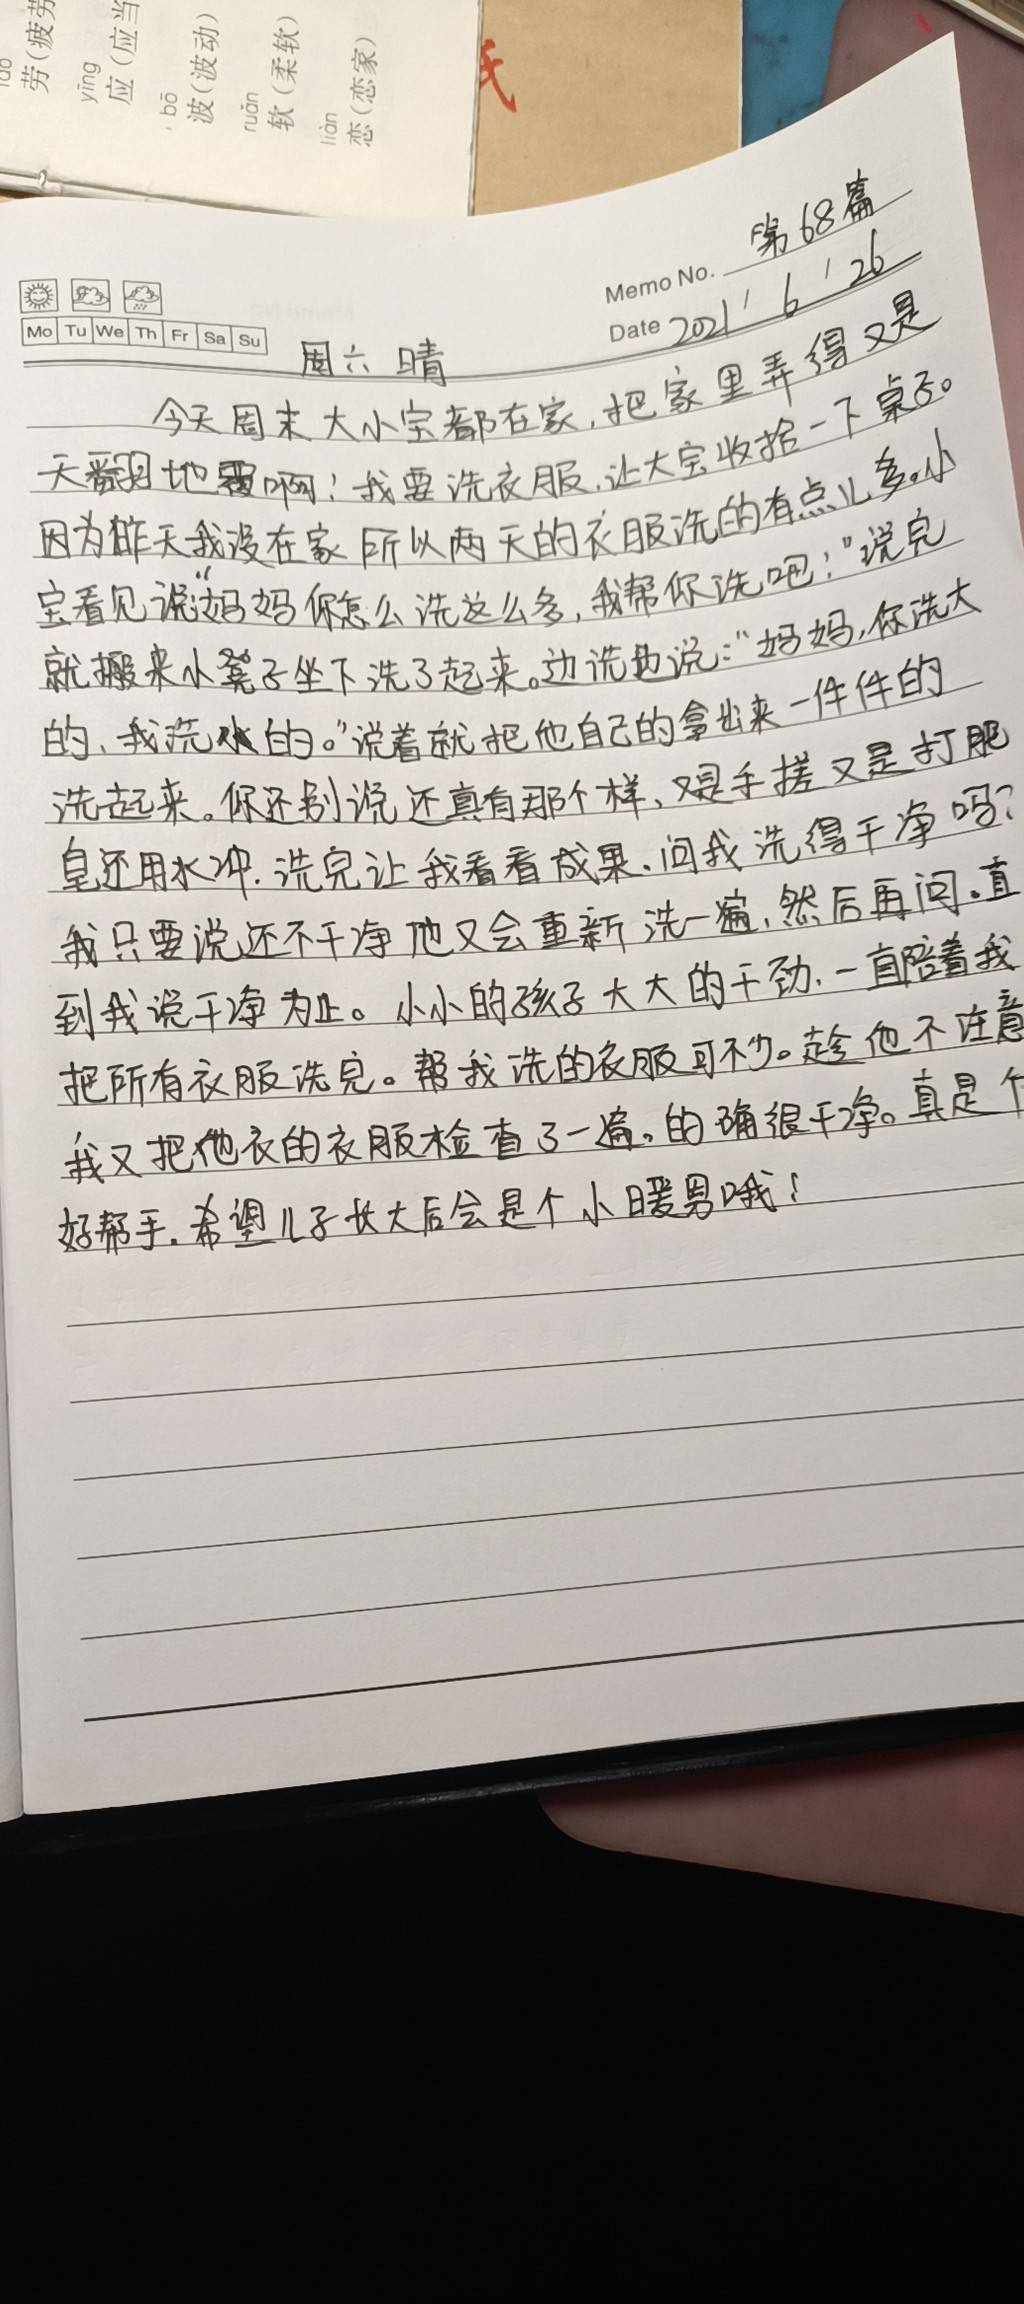 láo
劳(疲劳
yīng
应(应当
bō
波(波动)
ruǎn
软(柔软)
liàn
恋(恋家)
Memo No. 第68篇
Date 2021/6/26
Mo Tu We Th Fr Sa Su
周六 晴
今天周末大小宝都在家,把家里弄得又是
天翻地覆啊!我要洗衣服,让大宝收拾一下桌子。
因为昨天我没在家所以两天的衣服洗的有点儿多。小
宝看见说"妈妈你怎么洗这么多,我帮你洗吧!"说完
就搬来小凳子坐下洗了起来。边洗边说:"妈妈,你洗大
的、我洗小的。"说着就把他自己的拿出来一件件的
洗起来。你还别说还真有那个样、又是手搓又是打肥
皂还用水冲.洗完让我看看成果、问我洗得干净吗?
我只要说还不干净他又会重新洗一遍,然后再问。直
到我说干净为止。小小的孩子大大的干劲、一直陪着我
把所有衣服洗完。帮我洗的衣服可不少。趁他不注意
我又把他衣的衣服检查了一遍。的确很干净。真是个
好帮手。希望儿子长大后会是个小暖男哦!